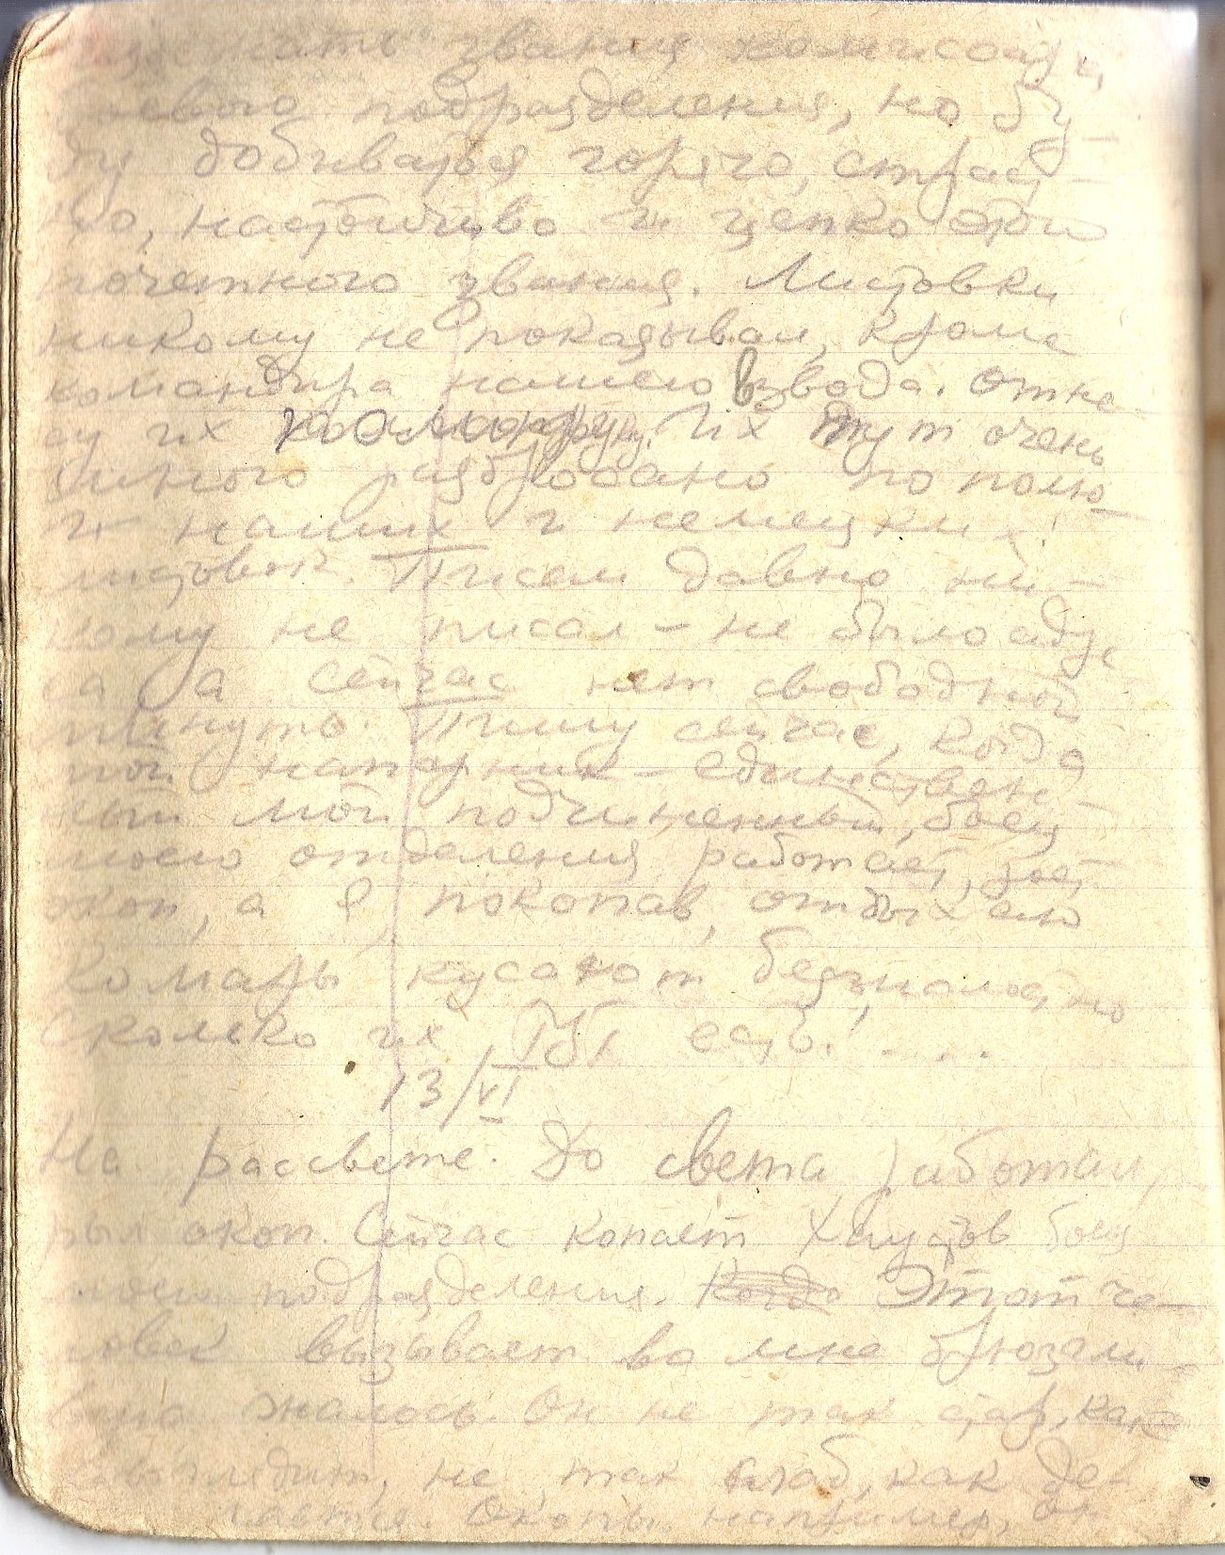 звания комиссара
подразделения, но бу-
ду добиваться горячо, страст-
но, настойчиво и цепко этого
почетного звания. Листовки
никому не показывал, кроме
командира нашего взвода. Отне-
су их командиру. Их тут очень
много разбросано по полю
и наших и немецких
листовок. Писем давно ни-
кому не писал – не было адре
са а сейчас нет свободной
минуты. Пишу сейчас, когда
мой напарник – единствен-
ный мой подчиненный, боец
моего отделения работает, роет
окоп, а я покопав, отдыхаю
Комары кусают безжалостно
сколько их тут есть! ....
13/VI
На рассвете. До света работал,
рыл окоп. Сейчас копает Хаустов боец
моего подразделения. Этот че-
ловек вызывает во мне брюзгли-
вую жалость. Он не так стар, как
выглядит, не так слаб, как де-
лается. Окопы, например, он